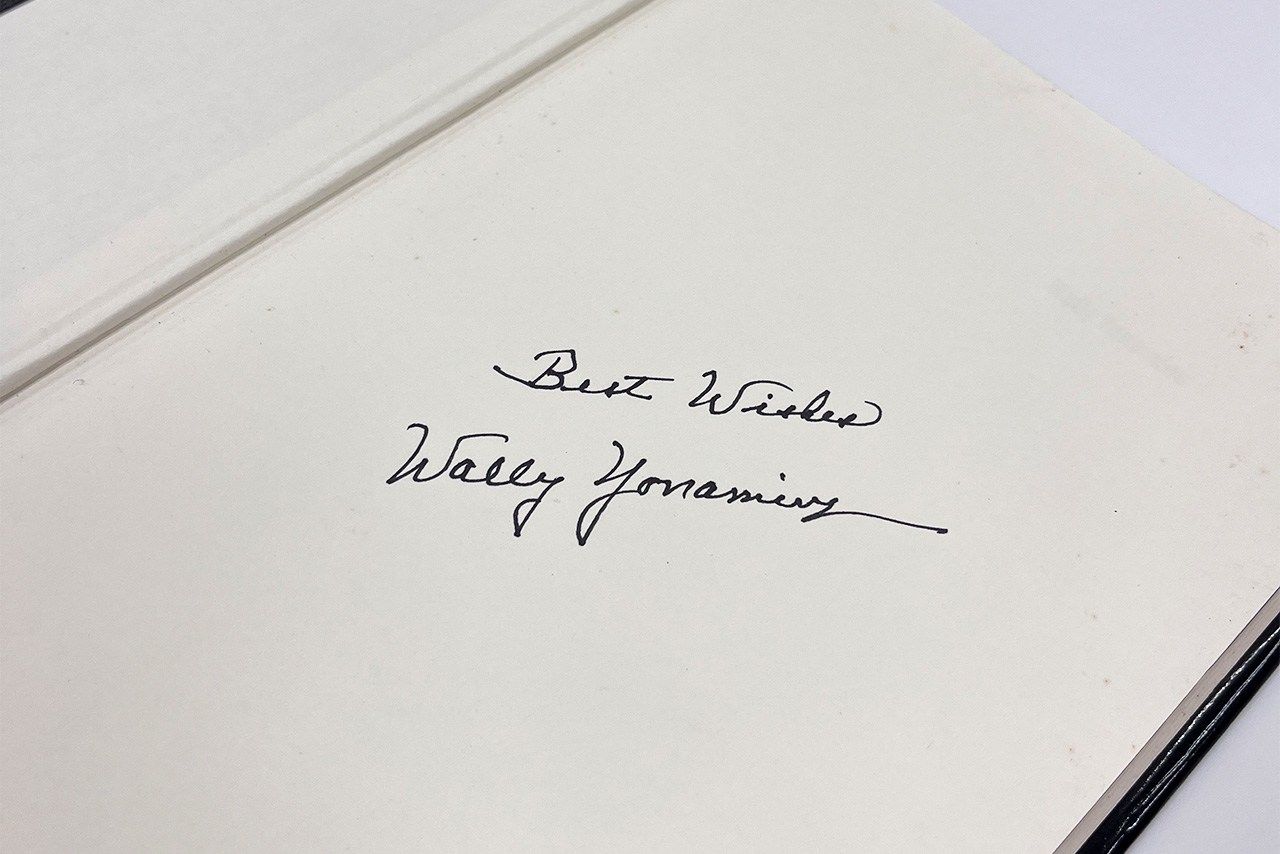 Best Wishes
Wally Yonamine